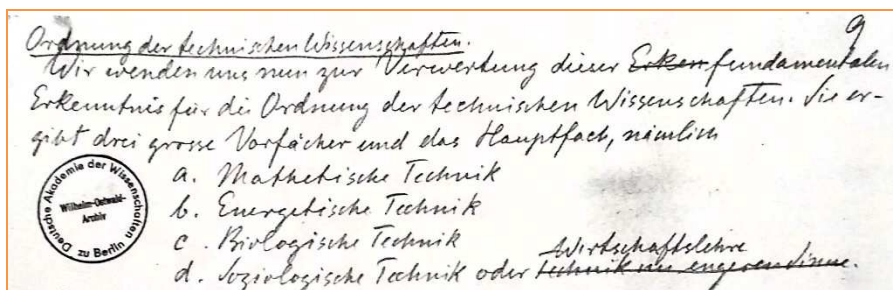 9
Ordnung der technischen Wissenschaften.
Wir wenden uns nun zur Verwertung dieser Erken fundamentalen
Erkenntnis für die Ordnung der technischen Wissenschaften. Sie er-
gibt drei grosse Vorfächer und das Hauptfach, nämlich
a. Mathetische Technik
b. Energetische Technik
c. Biologische Technik
Wirtschaftslehre
d. Soziologische Technik oder Technik im engeren Sinne.
Deutsche Akademie der Wissenschaften zu Berlin
Wilhelm-Ostwald-
Archiv